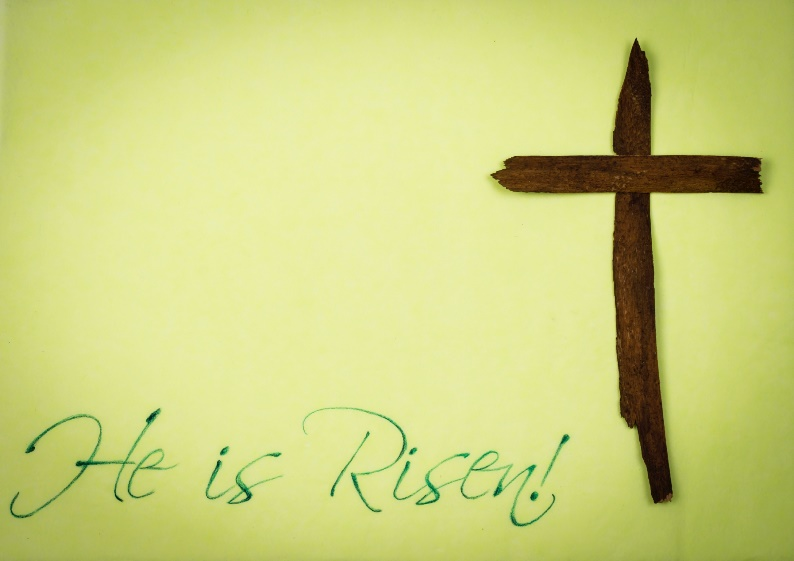 He is Risen!